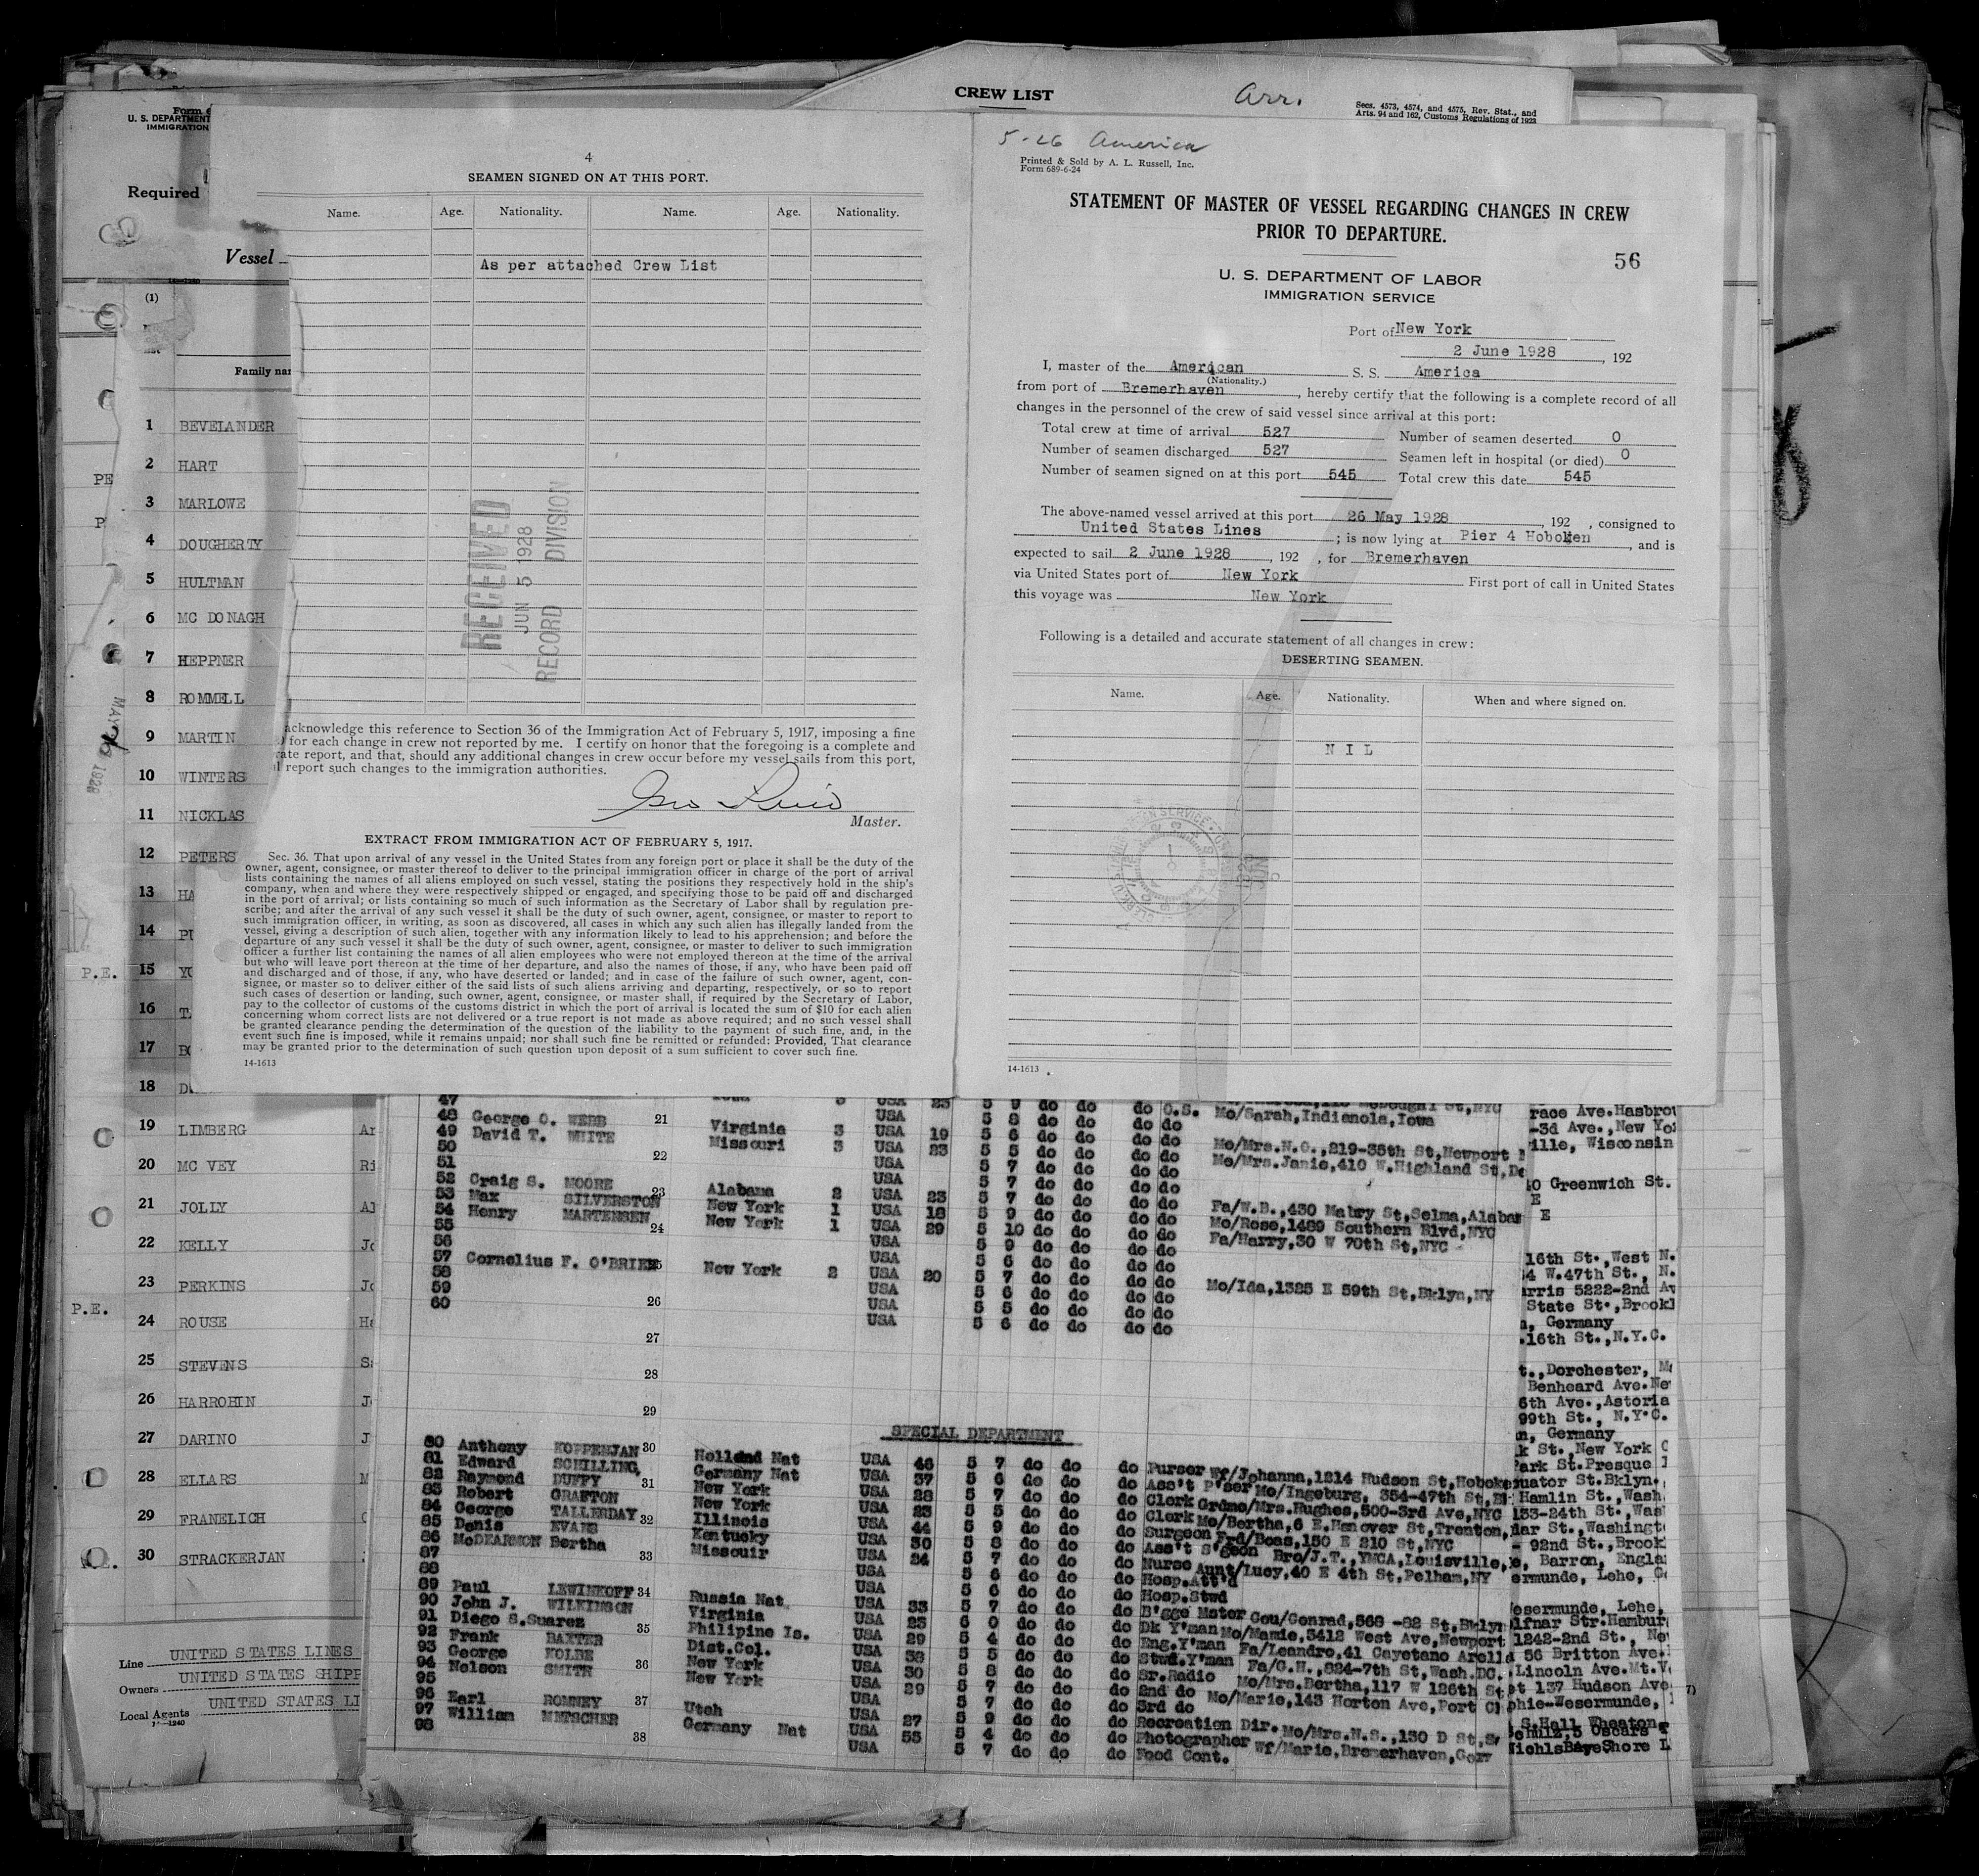 CREW LIST
Arr.
Secs. 4573, 4574, and 4575, Rev. Stat., and
Arts. 94 and 162, Customs Regulations of 1923
U. S. DEPARTMENT
IMMIGRATION
Required
Vessel
(1)
Family
1 BEVELANDER
2 HART
3 MARLOWE
4 DOUGHERTY
5 HULTMAN
6 MC DONAGH
7 HEPPNER
8 ROMMELL
9 MARTIN
10 WINTERS
11 NICKLAS
12 PETERS
13
14
P.E. 15
16
17
18
19 LIMBERG
20 MC VEY
21 JOLLY
22 KELLY
23 PERKINS
P.E.
24 ROUSE
25 STEVENS
26 HARROBIN
27 DARINO
28 ELLARS
29 FRANELICH
30 STRACKERJAN
Line UNITED STATES LINES
Owners UNITED STATES SHIPP
Local Agents UNITED STATES LI
14-1240
4
SEAMEN SIGNED ON AT THIS PORT.
Name. Age. Nationality. Name. Age. Nationality.
As per attached Crew List
RECEIVED
JUN 5 1928
RECORD DIVISION
acknowledge this reference to Section 36 of the Immigration Act of February 5, 1917, imposing a fine
for each change in crew not reported by me. I certify on honor that the foregoing is a complete and
rate report, and that, should any additional changes in crew occur before my vessel sails from this port,
report such changes to the immigration authorities.
Master.
EXTRACT FROM IMMIGRATION ACT OF FEBRUARY 5, 1917.
Sec. 36. That upon arrival of any vessel in the United States from any foreign port or place it shall be the duty of the
owner, agent, consignee, or master thereof to deliver to the principal immigration officer in charge of the port of arrival
lists containing the names of all aliens employed on such vessel, stating the positions they respectively hold in the ship's
company, when and where they were respectively shipped or engaged, and specifying those to be paid off and discharged
in the port of arrival; or lists containing so much of such information as the Secretary of Labor shall by regulation pre-
scribe; and after the arrival of any such vessel it shall be the duty of such owner, agent, consignee, or master to report to
such immigration officer, in writing, as soon as discovered, all cases in which any such alien has illegally landed from the
vessel, giving a description of such alien, together with any information likely to lead to his apprehension; and before the
departure of any such vessel it shall be the duty of such owner, agent, consignee, or master to deliver to such immigration
officer a further list containing the names of all alien employees who were not employed thereon at the time of the arrival
but who will leave port thereon at the time of her departure, and also the names of those, if any, who have been paid off
and discharged and of those, if any, who have deserted or landed; and in case of the failure of such owner, agent, con-
signee, or master so to deliver either of the said lists of such aliens arriving and departing, respectively, or so to report
such cases of desertion or landing, such owner, agent, consignee, or master shall, if required by the Secretary of Labor,
pay to the collector of customs of the customs district in which the port of arrival is located the sum of $10 for each alien
concerning whom correct lists are not delivered or a true report is not made as above required; and no such vessel shall
be granted clearance pending the determination of the question of the liability to the payment of such fine, and, in the
event such fine is imposed, while it remains unpaid; nor shall such fine be remitted or refunded: Provided, That clearance
may be granted prior to the determination of such question upon deposit of a sum sufficient to cover such fine.
14-1613
5-26 America
Printed & Sold by A. L. Russell, Inc.
Form 689-6-24
STATEMENT OF MASTER OF VESSEL REGARDING CHANGES IN CREW
PRIOR TO DEPARTURE.
56
U. S. DEPARTMENT OF LABOR
IMMIGRATION SERVICE
Port of New York
2 June 1928, 192
I, master of the American S. S. America
(Nationality.)
from port of Bremerhaven, hereby certify that the following is a complete record of all
changes in the personnel of the crew of said vessel since arrival at this port:
Total crew at time of arrival 527 Number of seamen deserted 0
Number of seamen discharged 527 Seamen left in hospital (or died) 0
Number of seamen signed on at this port 545 Total crew this date 545
The above-named vessel arrived at this port 26 May 1928, 192 , consigned to
United States Lines; is now lying at Pier 4 Hoboken, and is
expected to sail 2 June 1928, 192 , for Bremerhaven
via United States port of New York First port of call in United States
this voyage was New York
Following is a detailed and accurate statement of all changes in crew:
DESERTING SEAMEN.
Name. Age. Nationality. When and where signed on.
N I L
14-1613
48 George O. WEBB
49 David T. WHITE Virginia 3 USA 19
50 Missouri 3 USA 23
51
52 Craig S. MOORE Alabama 2 USA 23
53 Max SILVERSTON New York 1 USA 18
54 Henry MARTENSEN New York 1 USA 29
55
56
57 Cornelius F. O'BRIEN New York 2 USA 20
58
59
60
Mo/Sarah, Indianola, Iowa
Mo/Mrs.N.O.,219-35th St,Newport
Mo/Mrs.Janie,410 W.Highland St,
Fa/W.B.,430 Mabry St,Selma,Alabam
Mo/Rose,1489 Southern Blvd,NYC
Fa/Harry,30 W 70th St,NYC
Mo/Ida,1325 E 59th St,Bklyn,NY
SPECIAL DEPARTMENT
80 Anthony KOPPENJAN Holland Nat USA 46 5 7 do do do Purser Wf/Johanna,1214 Hudson St,Hoboke
81 Edward SCHILLING, Germany Nat USA 37 5 6 do do do Ass't P'ser Mo/Ingeburg, 354-47th St,
82 Raymond DUFFY New York USA 28 5 7 do do do Clerk Grdmo/Mrs.Hughes,500-3rd Ave,NYC
83 Robert GRAFTON New York USA 23 5 5 do do do Clerk Mo/Bertha,6 E.Hanover St,Trenton,
84 George TALLERDAY Illinois USA 44 5 9 do do do Surgeon Frd/Boas,150 E 210 St,NYC
85 Denis EVANS Kentucky USA 30 5 8 do do do Ass't S'geon Bro/J.T.,YMCA,Louisville,
86 McDEARMON Bertha Missouir USA 34 5 7 do do do Nurse Aunt/Lucy,40 E 4th St,Pelham,NY
87 USA 5 6 do do do Hosp.Att'd
88 USA 5 6 do do do Hosp.Stwd
89 Paul LEWINKOFF Russia Nat USA 33 5 7 do do do B'gge Mster Cou/Conrad,568 -82 St,Bklyn
90 John J. WILKINSON Virginia USA 25 6 0 do do do Dk Y'man Mo/Mamie,3412 West Ave,Newport
91 Diego S.Suarez Philipine Is. USA 29 5 4 do do do Eng.Y'man Fa/Leandro,41 Cayetano Arell
92 Frank BAXTER Dist.Col. USA 38 5 5 do do do Stwd.Y'man Fa/G.H.,824-7th St,Wash.DC.
93 George KOLBE New York USA 30 5 8 do do do Sr.Radio Mo/Mrs.Bertha,117 W 126th St
94 Nelson SMITH New York USA 29 5 7 do do do 2nd do Mo/Marie,143 Horton Ave,Port
95 USA 5 7 do do do 3rd do
96 Earl ROMNEY Utah USA 27 5 9 do do do Recreation Dir. Mo/Mrs.N.S.,130 D St,
97 William METSCHER Germany Nat USA 55 5 4 do do do Photographer Wf/Marie,Bremerhaven,Ger
98 USA 5 7 do do do Food Cont.
21
22
23
24
26
27
28
29
30
31
32
33
34
35
36
37
38
race Ave.Hasbro
-3d Ave.,New Yo
ville, Wisconsin
Greenwich St.
E
E
16th St., West N.
W.47th St., N.
5222-2nd Av
State St.,Brookl
Germany
16th St.,N.Y.C.
t.,Dorchester,
Benheard Ave.Ne
6th Ave.,Astoria
99th St., N.Y.C.
Germany
k St.,New York
Park St.Presque
uator St.Bklyn.
Hamlin St.,Wash
133-24th St.,Was
St.,Washingt
- 92nd St.,Brook
Barron, Engla
ermunde, Lehe,
esermunde, Lehe,
Str.Hambur
1242-2nd St.,
56 Britton Ave.
Lincoln Ave.Mt.V
137 Hudson Ave
phie-Wesermunde,
S.Hall Wheaton